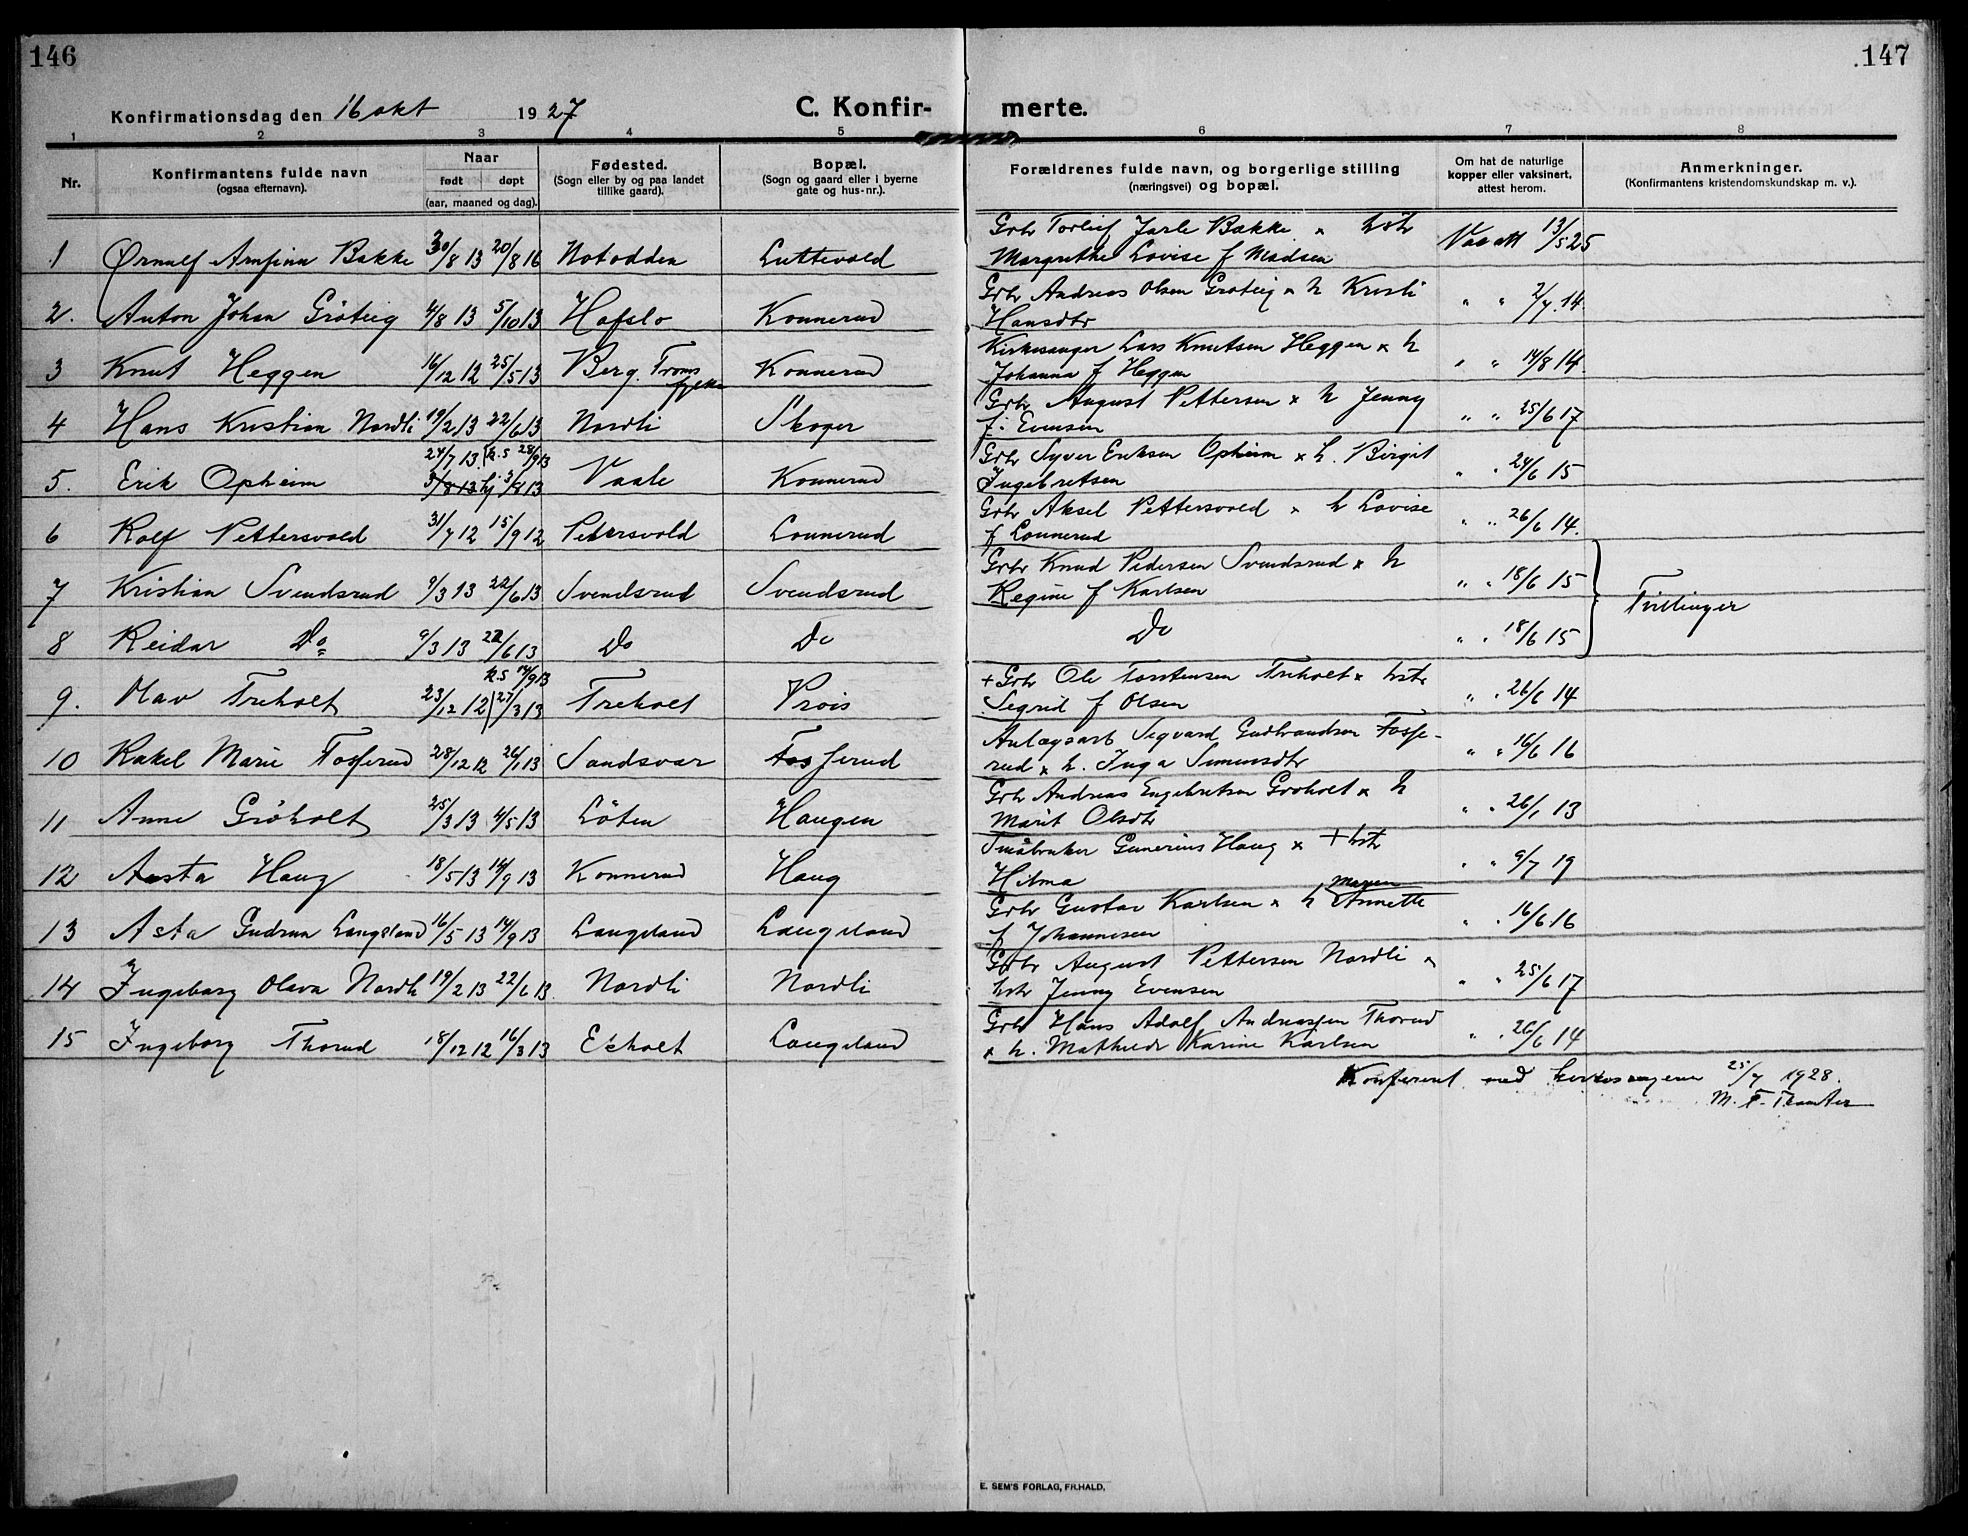 146
.147
Konfirmationsdag den 16 okt 1927
C. Konfir-
merte.
1 2 3 4 5 6 7 8
Nr.
Konfirmantens fulde navn
(ogsaa efternavn).
Naar
født døpt
(aar, maaned og dag).
Fødested.
(Sogn eller by og paa landet
tillike gaard).
Bopæl.
(Sogn og gaard eller i byerne
gate og hus-nr.).
Forældrenes fulde navn, og borgerlige stilling
(næringsvei) og bopæl.
Om hat de naturlige
kopper eller vaksinert,
attest herom.
Anmerkninger.
(Konfirmantens kristendomskundskap m. v.).
1 Ørnulf Arnfinn Bakke 30/8 13 20/8 16 Notodden
Grbr Torleif Jarle Bakke x hstr
Margrethe Lovise f Madsen
Vaatt 13/5 25
2. Anton Johan Grøteig 4/8 13 5/10 13 Hafslo Konnerud
Grbr Andreas Olsen Grøteig x h Kristi
Hansdtr
" " 2/7 14.
3 Knut Heggen 16/12 12 25/5 13 Berg. Troms
fylke
Konnerud
Kirkesanger Lars Knutsen Heggen x h
Johanna f Heggen
" " 14/8 14
4 Hans Kristian Nordli 19/2 13 22/6 13 Nordli Skoger
Grbr August Pettersen x h Jenny
f. Evensen
" " 25/6 17
24/7 13. k.s 28/9 13
5. Erik Opheim 3/8 13 hj 3/8 13 Vaale Konnerud
Grbr Syver Eriksen Opheim x h. Birgit
Ingebretsen
" " 24/6 15
6 Rolf Pettersvold 31/7 12 15/9 12 Petersvold Connerud
Grbr Aksel Pettersvold x h Lovise
f Connerud
" " 26/6 14.
7 Kristian Svendsrud 9/3 13 22/6 13 Svendsrud Svendsrud
Grbr Knud Pedersen Svendsrud x h
Regine f Karlsen
" " 18/6 15
Tvillinger
8 Reidar Do 9/3 13 22/6 13 Do Do
Do
" " 18/6 15
k.s 14/9 13
9. Olav Treholt 23/12 12 27/3 13 Treholt
+ Grbr Ole Torstensen Treholt x hstr
Sigrid f Olsen
" " 26/6 14
10 Rakel Marie Fosserud 28/12 12 26/1 13 Sandsvær Fosserud
Anlægsarb Sigvard Gudbrandsen Fosse-
rud x h. Inga Simensdtr
" " 16/6 16
11 Anne Grøholt 25/3 13 4/5 13 Løten Haugen
Grbr Andreas Engebretsen Groholt x h
Marit Olsdtr
" " 26/1 13
12 Aasta Haug 18/5 13 14/9 13 Konnerud Haug
Småbruker Gunerius Haug x + hstr
Hilma
" " 9/7 19
13 Asta Gudrun Langeland 16/5 13 14/9 13 Langeland Langeland
Maren
Grbr Gustav Karlsen x h Annette
f Johannesen
" " 16/6 16
14 Ingeborg Olava Nordli 19/2 13 22/6 13. Nordli Nordli
Grbr August Pettersen Nordli x
hstr Jenny Evensen
" " 25/6 17
15 Ingeborg Thorud 18/12 12 16/3 13 Ekholt Langeland
Grbr Hans Adolf Andreassen Thorud
x h. Mathilde Karine Karlsen
" " 26/6 14
Konferert med kirkesangeren 25/7 1928.
E. SEM'S FORLAG, FR.HALD.